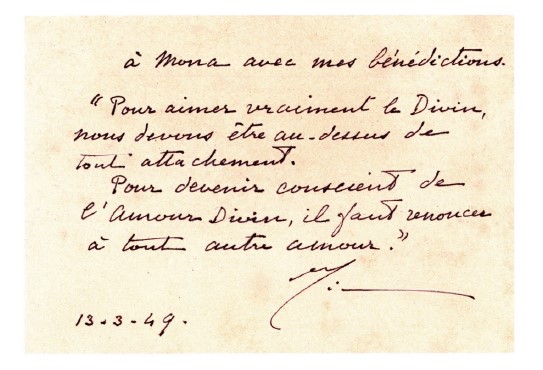 à Mona avec mes bénédictions.
“Pour aimer vraiment le Divin,
nous devons être au-dessus de
tout attachement.
Pour devenir conscient de
l'Amour Divin, il faut renoncer
à tout autre amour.”
13-3-49.